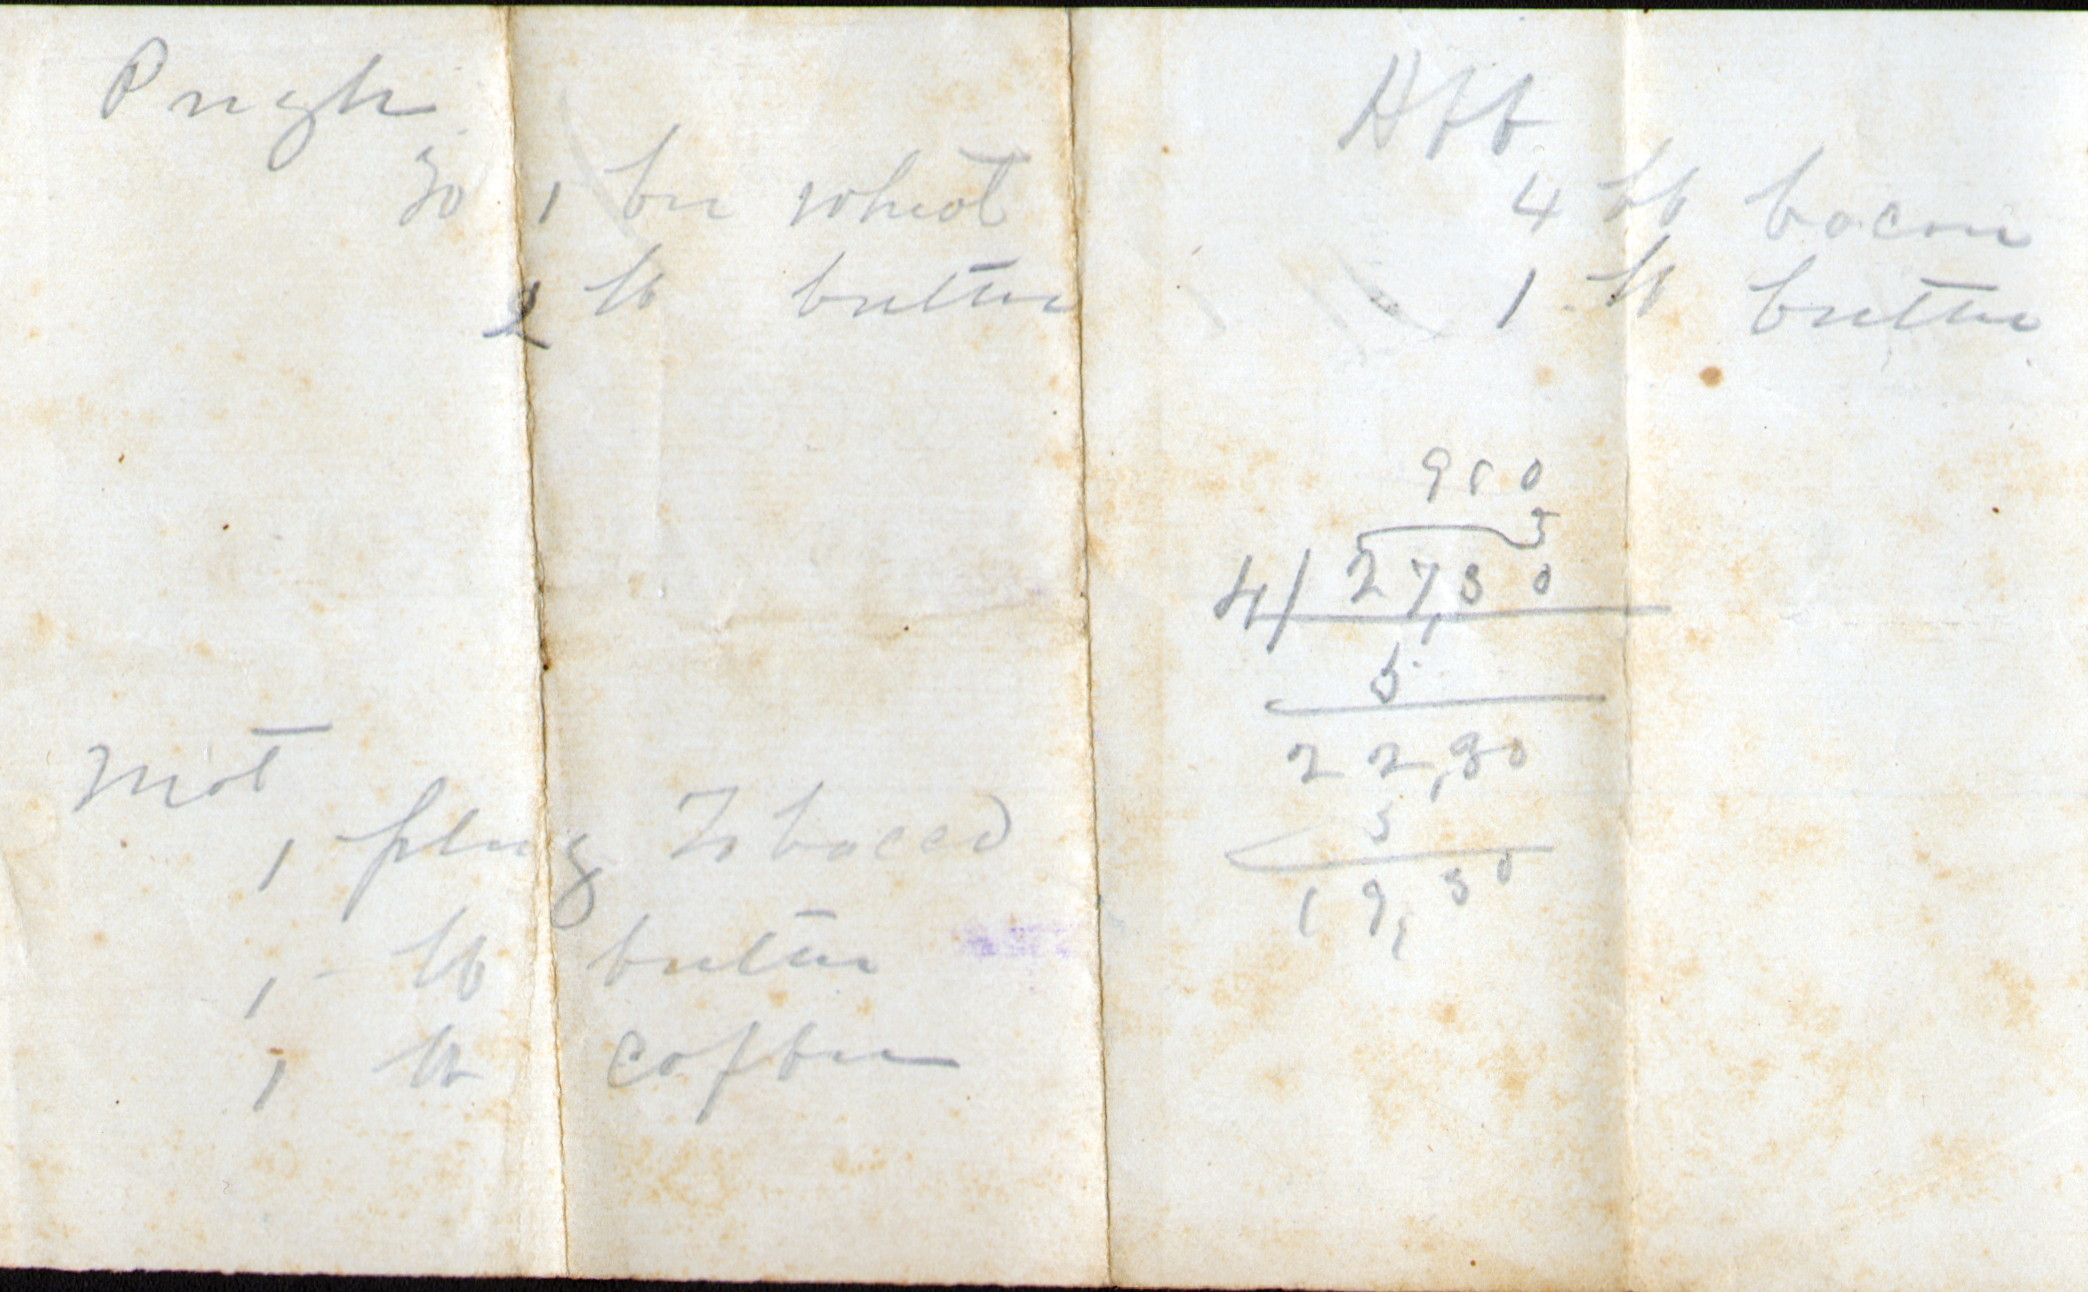 Pugh
To 1 bu wheat
2 lb butter
Mat
1 plug Tobacco
1 - lb butter
1 lb coffee
4 lb bacon
1 - lb butter
910
5
4/ 27,80
5
22,80
3
19,80